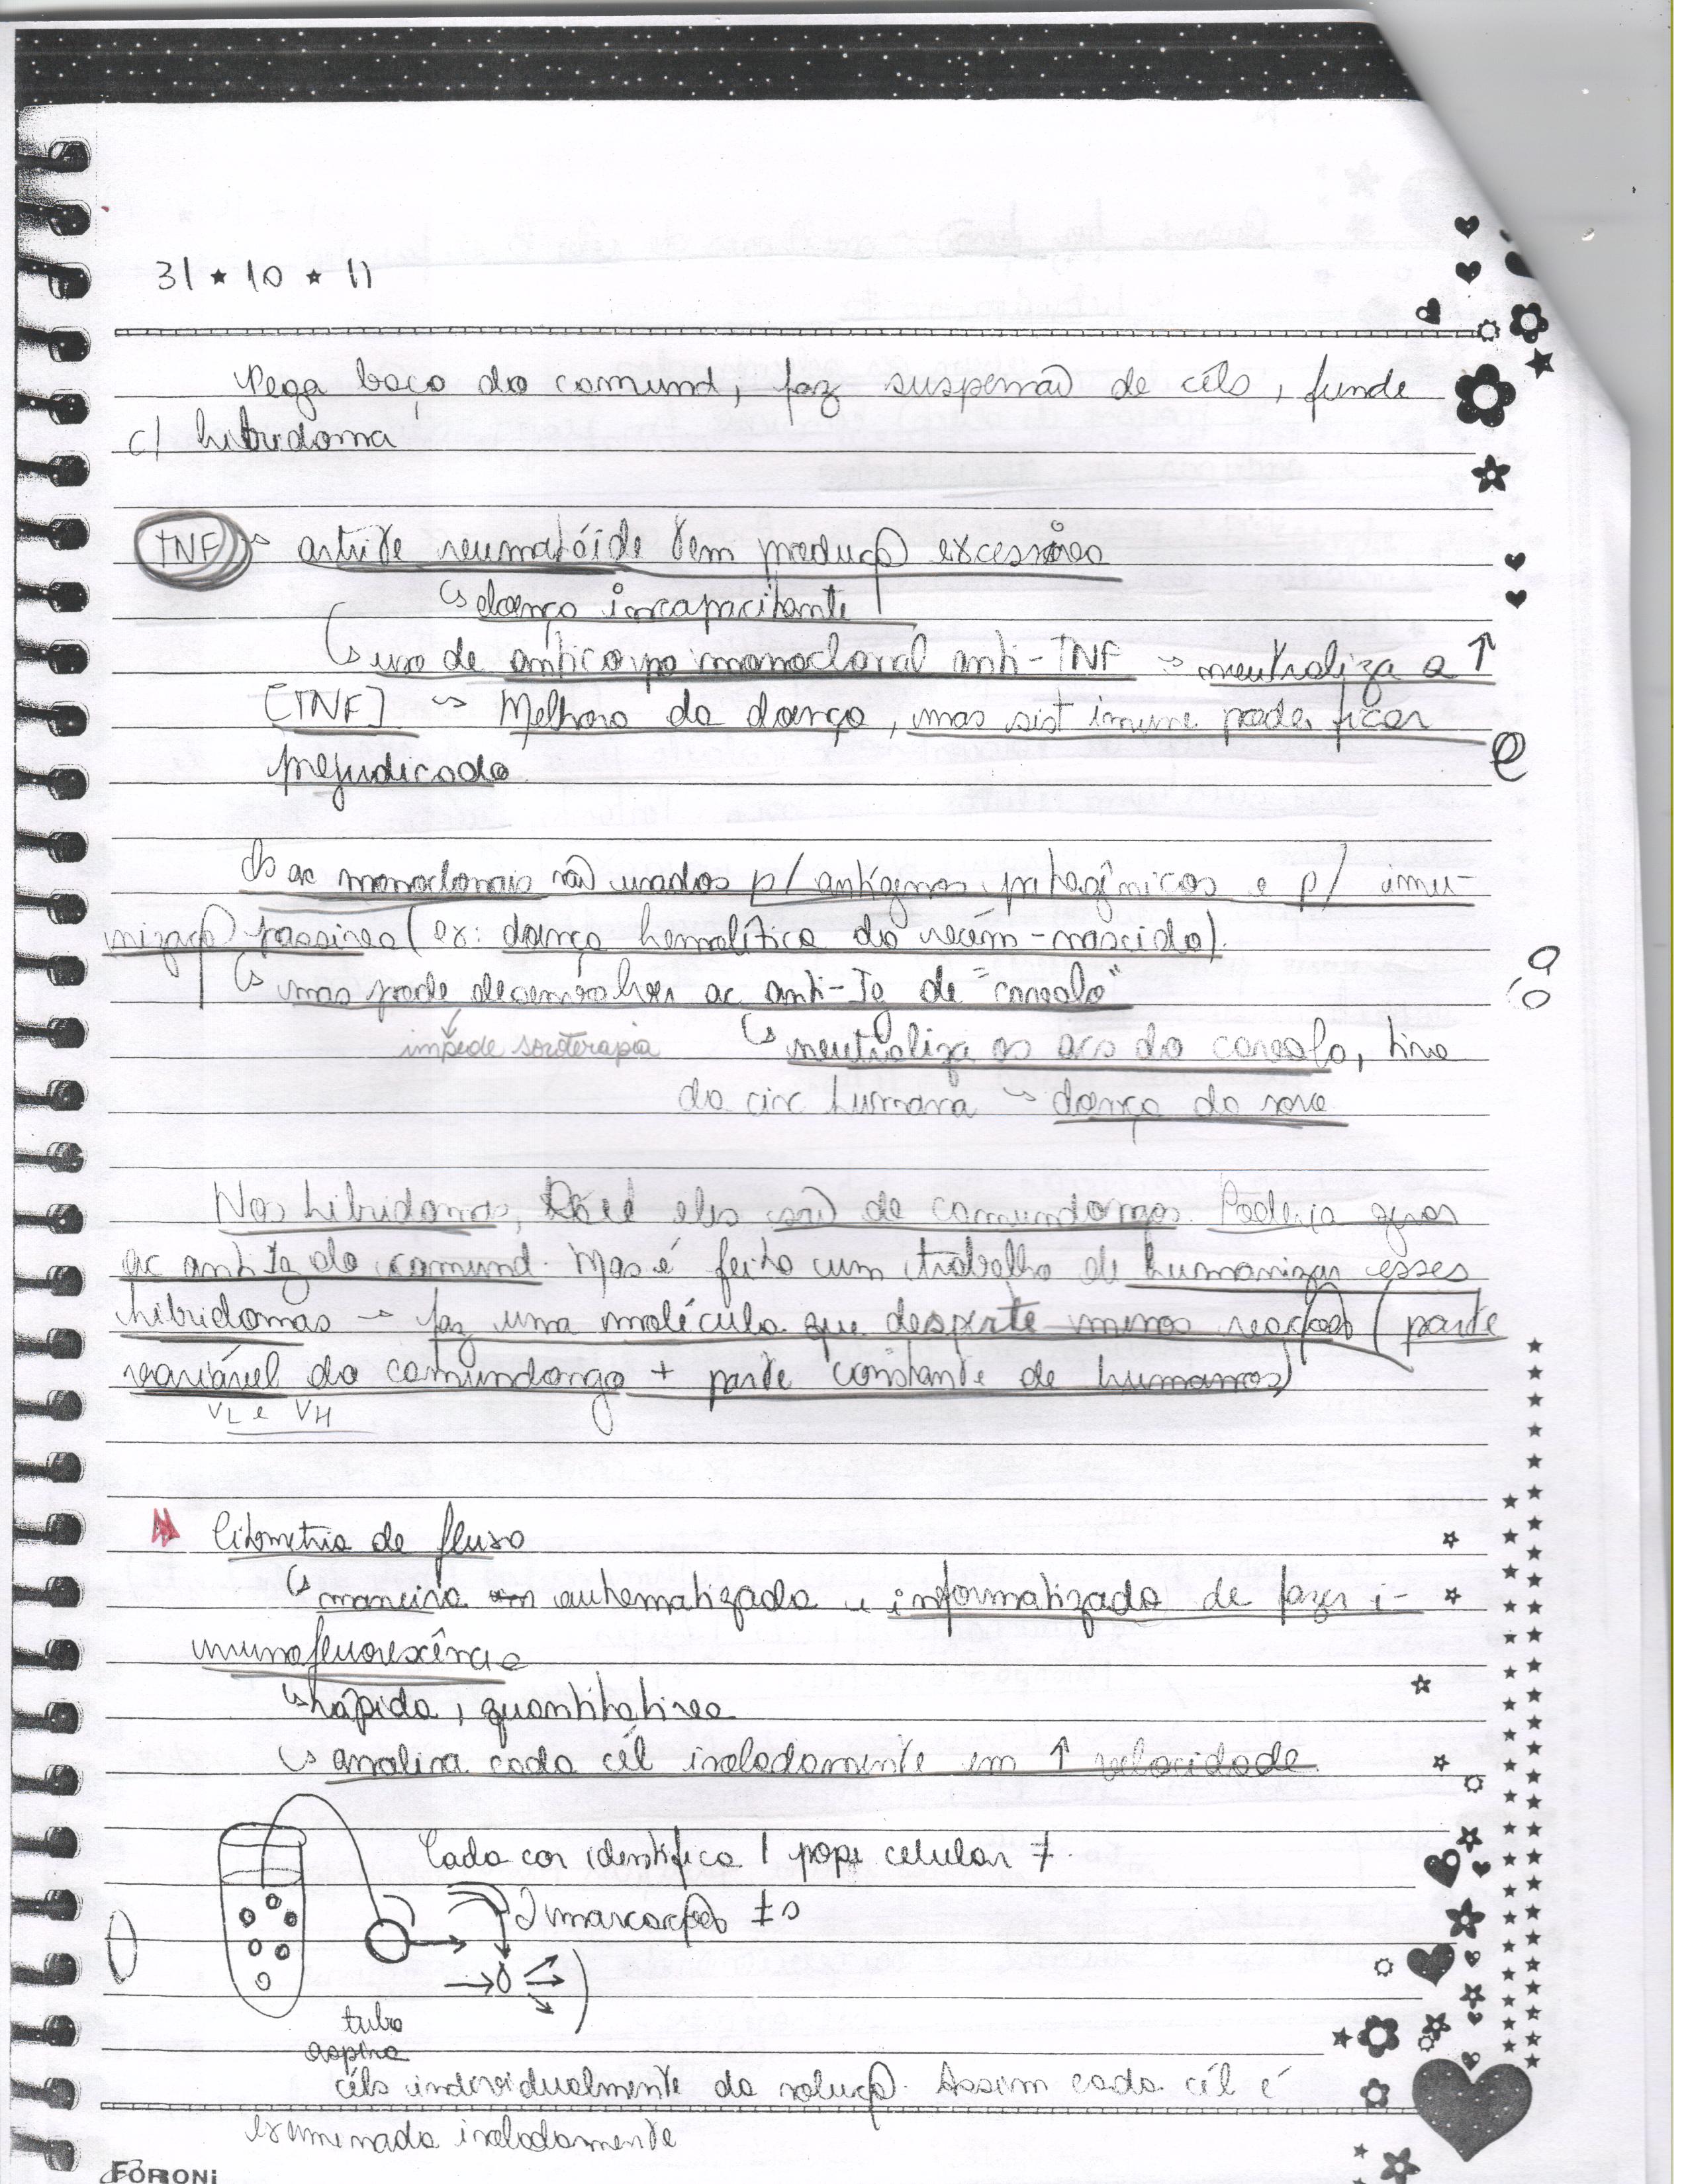 31 ★ 10 ★ 11
Pega baço do comund, faz suspensão de céls, funde
c/ hibridoma
TNF → artrite reumatóide tem produç excessiva
↳ doença incapacitante
↳ uso de anticorpo monoclonal anti-TNF → neutraliza a ↑
[TNF] → Melhora da doença, mas sist imune pode ficar
prejudicado
Os ac monoclonais são usados p/ antígenos patogênicos e p/ imu-
nizaç passiva (ex: doença hemolítica do recém-nascido).
↳ mas pode desenvolver ac anti-Ig de "cavalo"
impede soroterapia ↳ neutraliza os acs do cavalo, tira
da circ humana → doença do soro
Nos hibridomas, eles são de comundongos. Poderia gerar
ac anti Ig do comund. Mas é feito um trabalho de humanizar esses
hibridomas → faz uma molécula que desperte menos reação (parte
variável do comundongo + parte constante de humanos)
VL e VH
Citometria de fluxo
↳ maneira automatizada e informatizada de fazer i-
munofluorescência
↳ rápida, quantitativa
↳ analisa cada cél isoladamente em ↑ velocidade
Cada cor identifica 1 popç celular ≠.
2 marcações ≠s
tubo
aspira
céls individualmente da soluç. Assim cada cél é
examinada isoladamente
FORONI